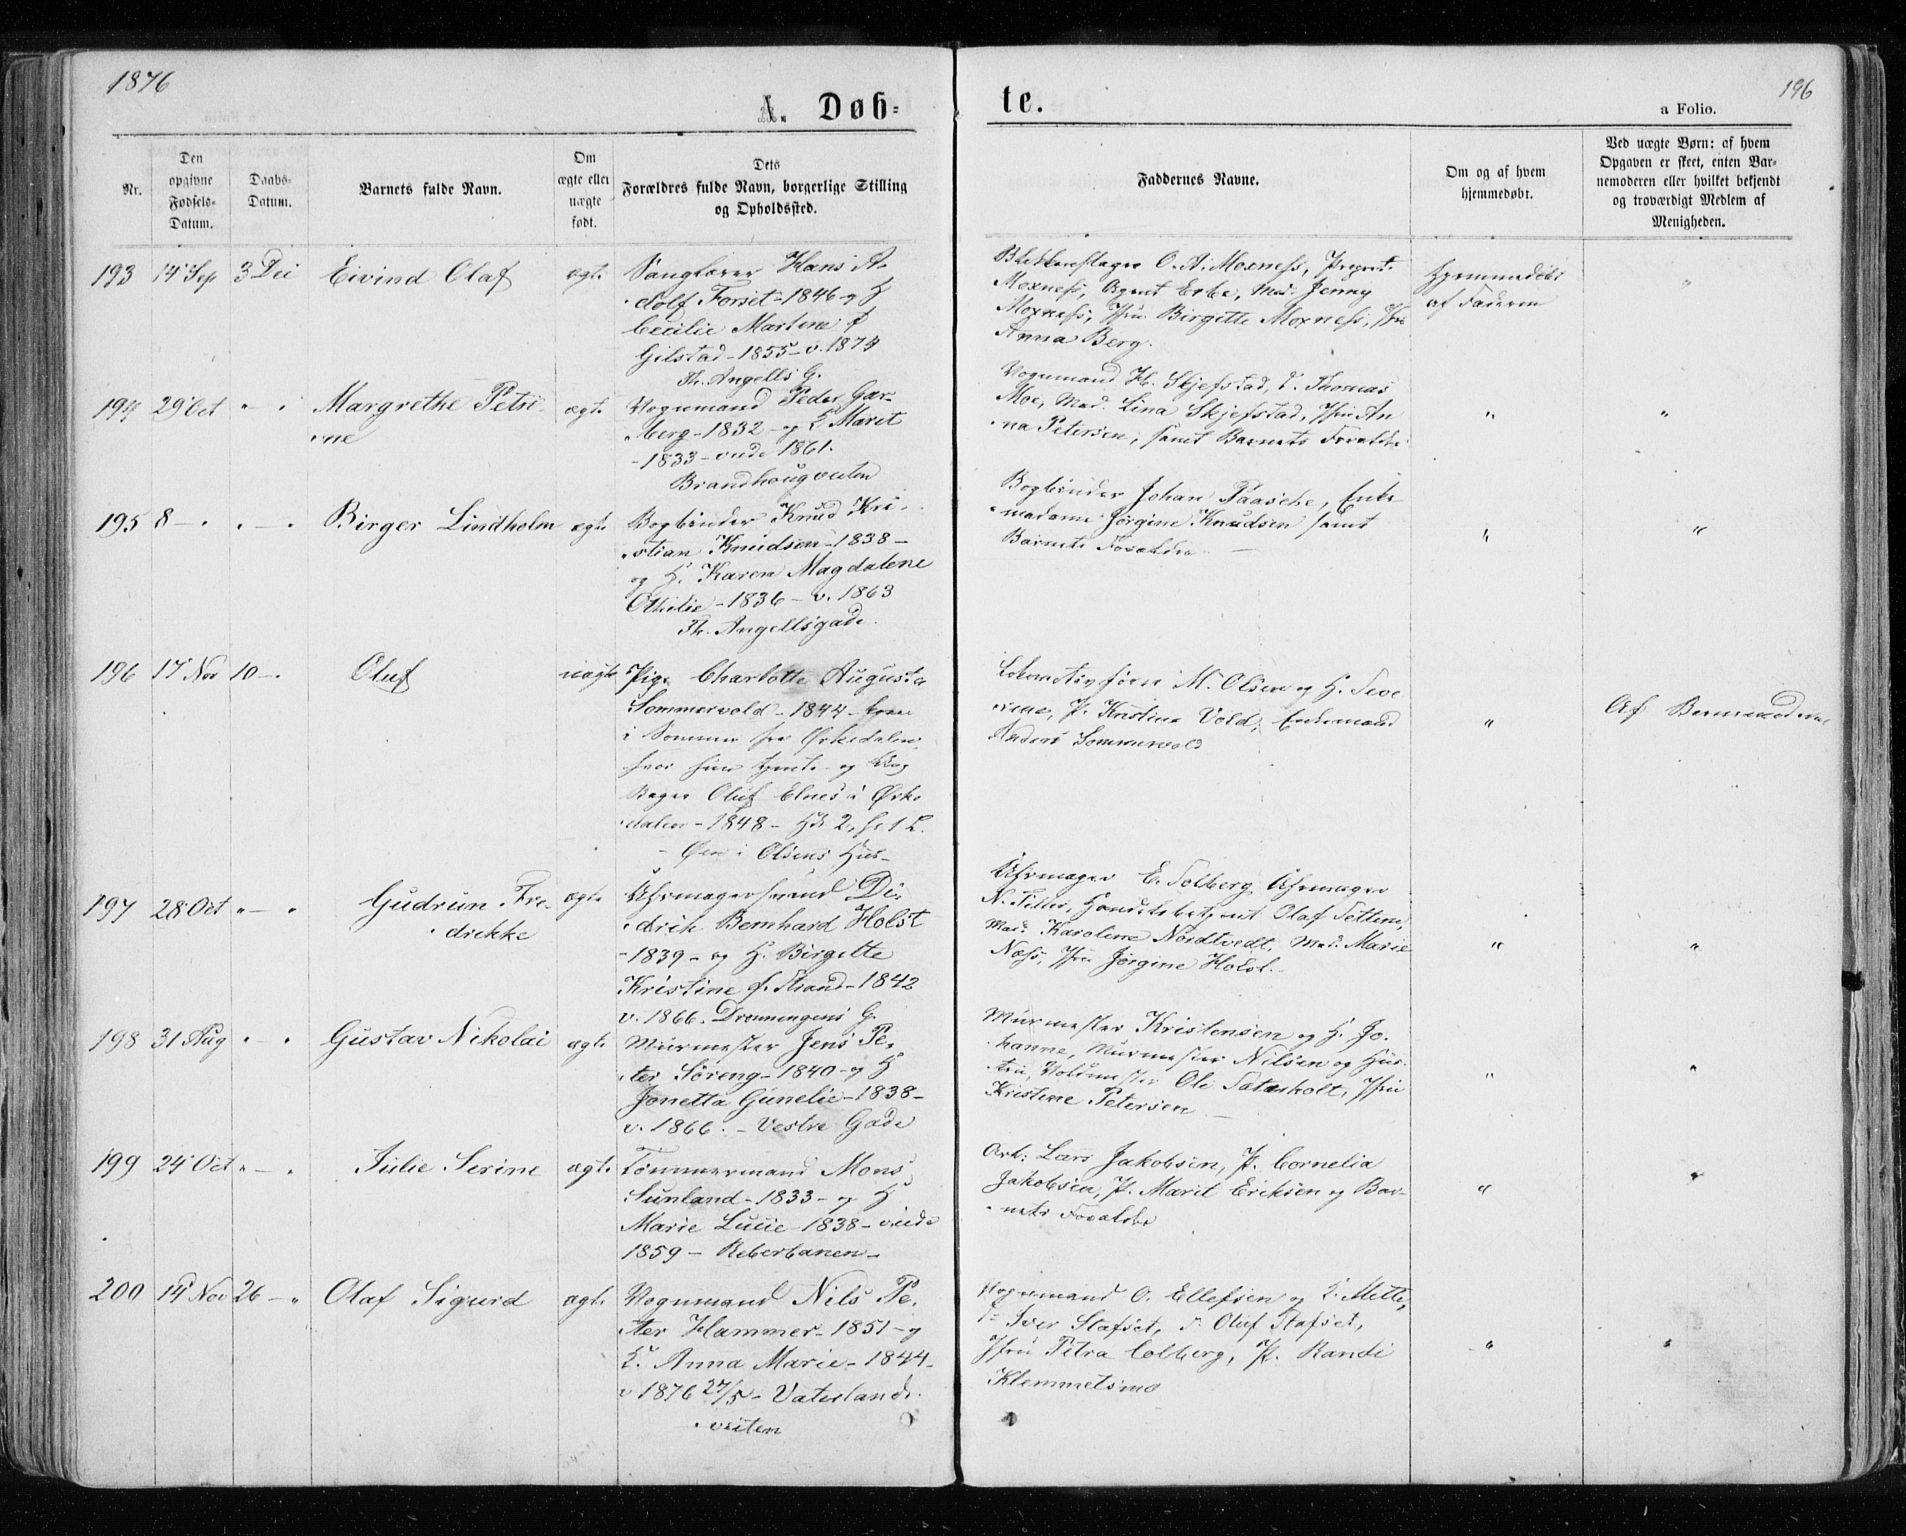 1876
A. Døb-
te.
196
a Folio.
Nr.
Den opgivne Fødsels-Datum.
Daabs-Datum.
Barnets fulde Navn.
Om ægte eller uægte født.
Dets Forældres fulde Navn, borgerlige Stilling og Opholdssted.
Faddernes Navne.
Om og af hvem hjemmedøbt.
Ved uægte Børn: af hvem Opgaven er skeet, enten Barnemoderen eller hvilket bekjendt og troværdigt Medlem af Menigheden.
193 14 Sep 3 Dec Eivind Olaf ægte
Sanglærer Hans A-
dolf Forset - 1846 - og H
Cecilie Martine f
Gilstad - 1855 - v. 1874
Th. Angells G.
O. A. Moxness,
Moxness, Agent Erbe, Mad. Jenny
Moxness, Jfru Birgitte Moxness, Jfru
Anna Berg.
hjemmedøbt
af Faderen
"
194 29 Oct " - " Margrethe Petri-
ne
ægte
Vognmand Peder Gar-
berg - 1832 - og K Marit
- 1833 - viede 1861.
Brandhougveiten
Vognmand H. Skjefstad, d. Thomas
Moe, Mad. Lina Skjefstad, Jfru An-
na Petersen, samt Barnets Forældre
"
"
195 8 - " " - " Birger Lindholm ægte
Bogbinder Knud Kri-
stian Knudsen - 1838 -
og H. Karen Magdalene
Othilie - 1836 - v. 1863
Th. Angellsgade.
Bogbinder Johan Paasche, Enke-
madame Jørgine Knudsen samt
Barnets Forældre -
"
"
196 17 Nov 10 - " Oluf uægte
Pige Charlotte Augusta
Sommervold - 1844 - kom
i Sommer fra Ørkedalen,
hvor hun tjente - og Ung
Bager Oluf Elnes i Ørke-
dalen - 1848 - Hds 2, h. 1 L.
- Øen i Olsens Hus -
Lokomotivfører M. Olsen og H. Seve-
rine, P. Kristine Vold, Enkemand
Anders Sommervold
"
Af Barnemoderen
197 28 Oct " - " Gudrun Fre-
drikke
ægte
Uhrmagersvend Di-
drik Bernhard Holst
- 1839 - og H. Birgitte
Kristine f. Strand - 1842
v. 1866. Dronningens G.
Uhrmager E. Solberg, Uhrmager
N. Tiller, Handelsbetjent Olaf Settem,
Mad. Karoline Nordtvedt, Mad. Marie
Næss, Jfru Jørgine Holst.
"
"
198 31 Aug " - " Gustav Nikolai ægte
Murmester Jens Pe-
ter Søreng - 1840 - og H
Jonetta Gunelie - 1838 -
v. 1866. - Vestre Gade
Murmester Kristensen og H. Jo-
hanne, Murmester Nilsen og Hus-
tru, Ole Sæterholt, Jfru
Kristine Petersen -
"
"
199 24 Oct " - " Julie Serine ægte
Tømmermand Mons
Sunland - 1833 - og H
Marie Lucie - 1838 - viede
1859 - Reberbanen -
Arb: Lars Jakobsen, P. Cornelia
Jakobsen, P. Marit Eriksen og Bar-
nets Forældre
"
"
200 14 Nov 26 - " Olaf Sigurd ægte
Vognmand Nils Pe-
ter Hammer - 1851 - og
K. Anna Marie - 1844 -
v 1876 27/5 - Vaterlands-
veiten
Vognmand O. Ellefsen og K. Mette,
Iver Stafset, d. Oluf Stafset,
Jfru Petra Colberg, P. Randi
Klemmetsmo
"
"